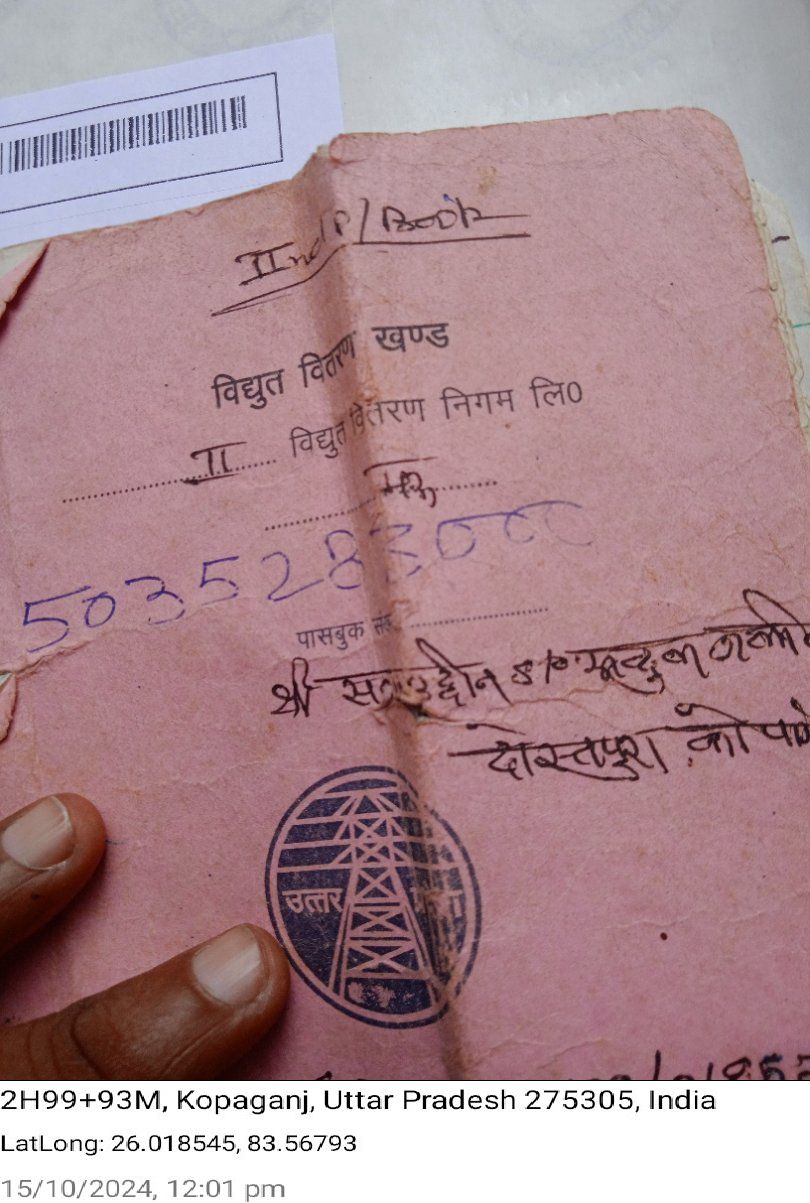 IInd P/Book
विद्युत वितरण खण्ड
II विद्युत वितरण निगम लि०
मऊ
5035283000
पासबुक
श्री
दोस्तपुरा कोपा
उत्तर
2H99+93M, Kopaganj, Uttar Pradesh 275305, India
LatLong: 26.018545, 83.56793
15/10/2024, 12:01 pm